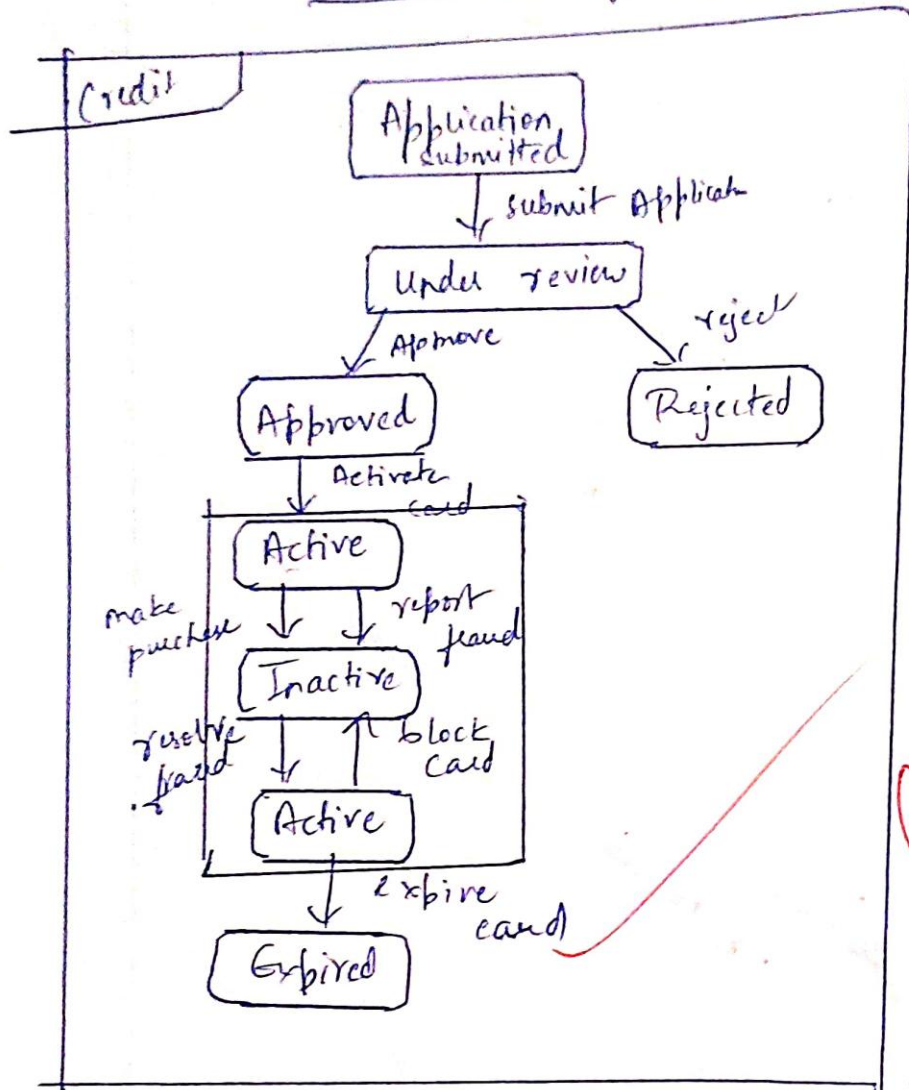 Credit
Application
submitted
submit Applicatn
Under review
Approve
reject
Approved
Rejected
Activate
card
Active
make
purchase
report
fraud
Inactive
resolve
fraud
block
card
Active
expire
card
Expired